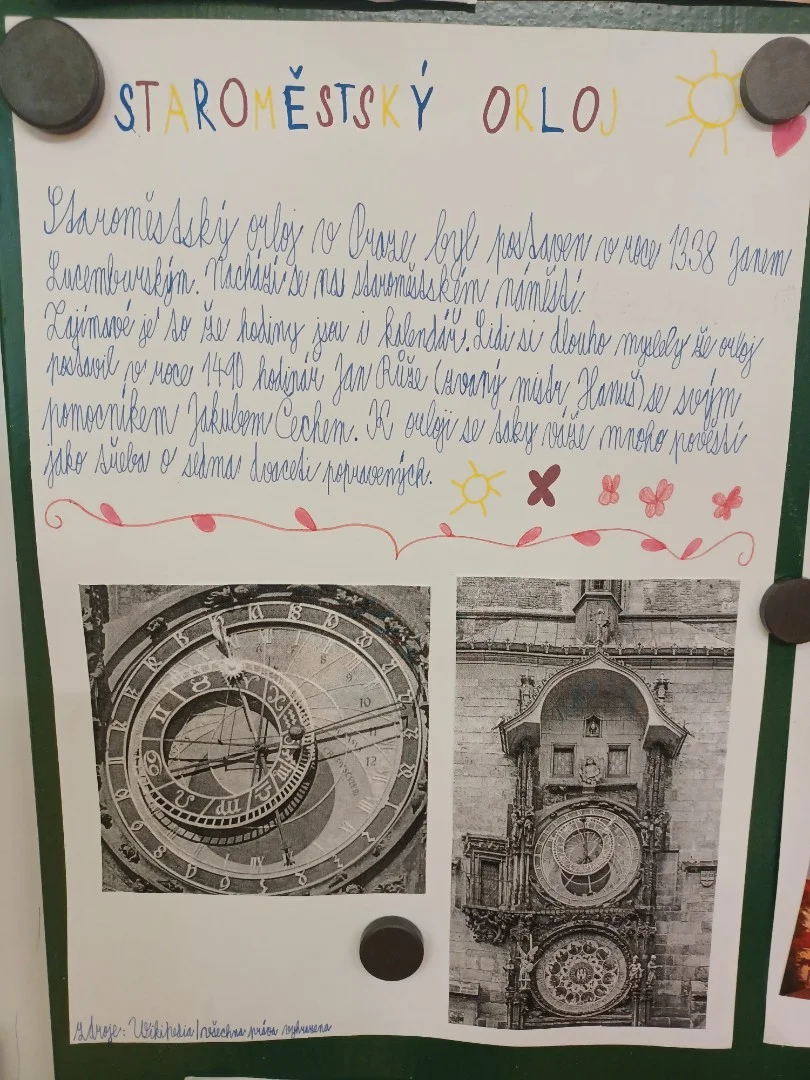 STAROMĚSTSKÝ ORLOJ
Staroměstský orloj v Praze byl postaven v roce 1338 Janem
Lucemburským. Nachází se na staroměstském náměstí.
Zajímavé je to že hodiny jsou i kalendář. Lidi si dlouho myslely že orloj
postavil v roce 1490 hodinář Jan Růže (zvaný mistr Hanuš) se svým
pomocníkem Jakubem Čechem. K orloji se taky váže mnoho pověstí
jako třeba o sedma dvaceti popravených.
zdroje: Wikipedia/všechna práva vyhrazena